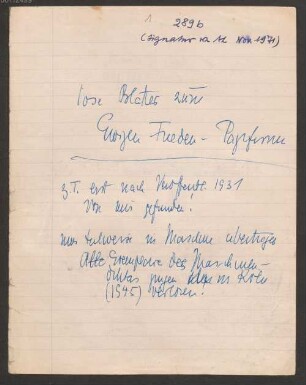 1 289b
(Signatur v. Nov 1971)
lose Blätter zum
Ewigen Frieden-
z.T. erst nach Veröffentl. 1931
von mir gefunden!
nur teilweise in Maschine übertragen
Alle Exemplare des Maschinen-
gingen in Köln
(1945) verloren!